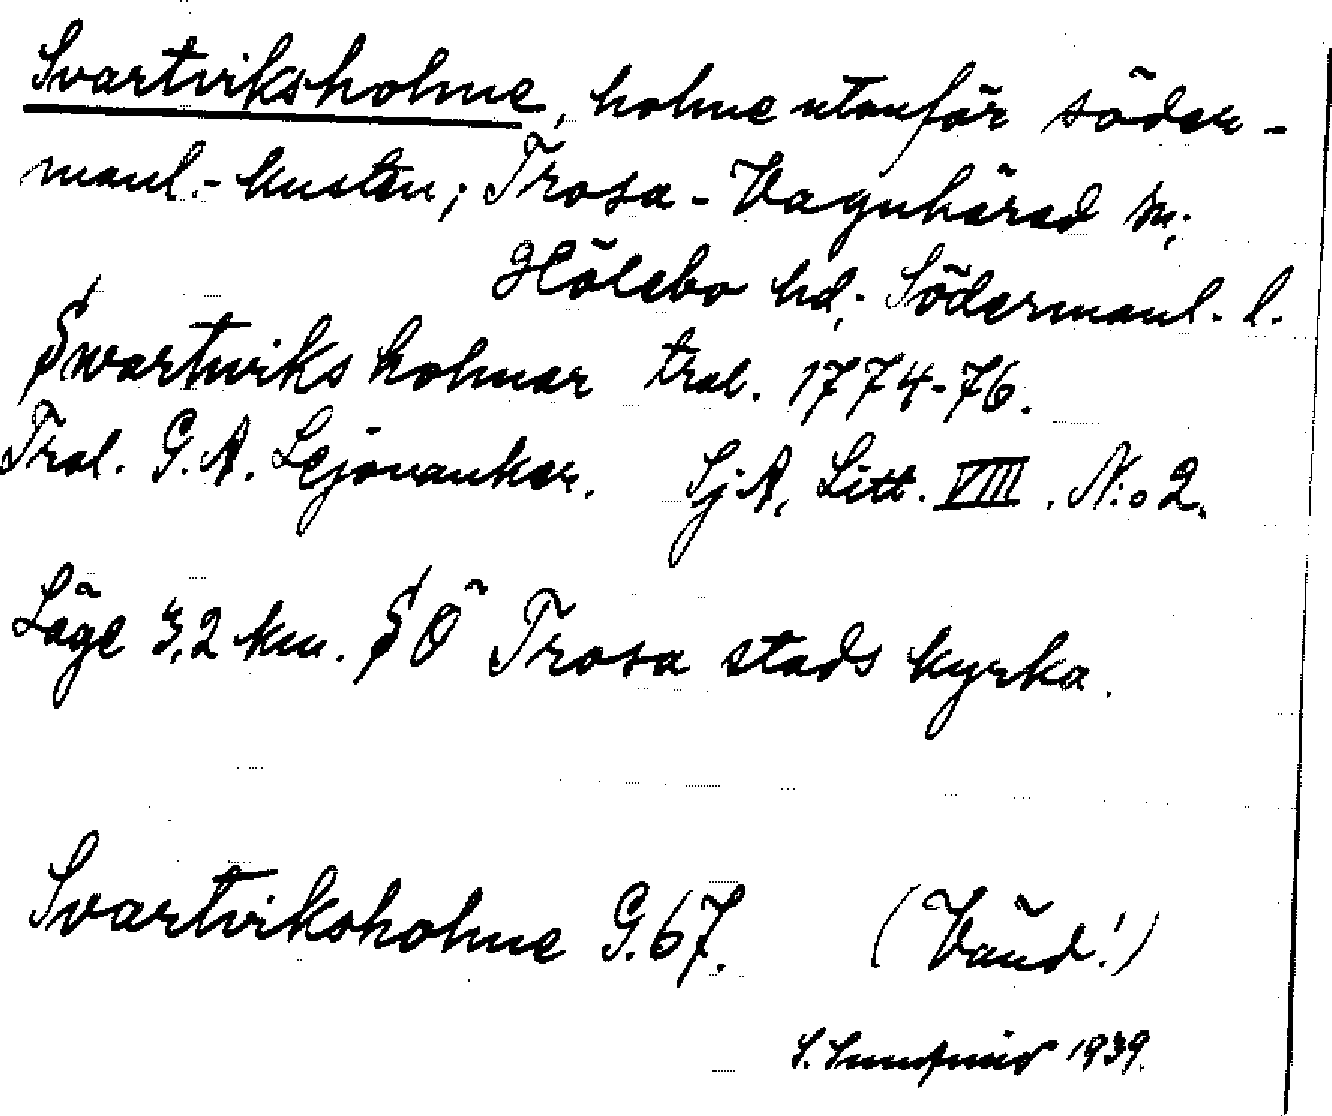 Svartviksholme, holme utanför söder-
manl.-kusten; Trosa-Vagnhärad sn;
Hölebo hd; Södermanl. l.
Swartwiks holmar tral. 1774-76.
Tral. G. A. Lejonanker. SjA, Litt. VIII. N:o 2.
Läge 3,2 km. SÖ Trosa stads kyrka.
Svartviksholme G. 67. (Vänd!)
S. 1939.